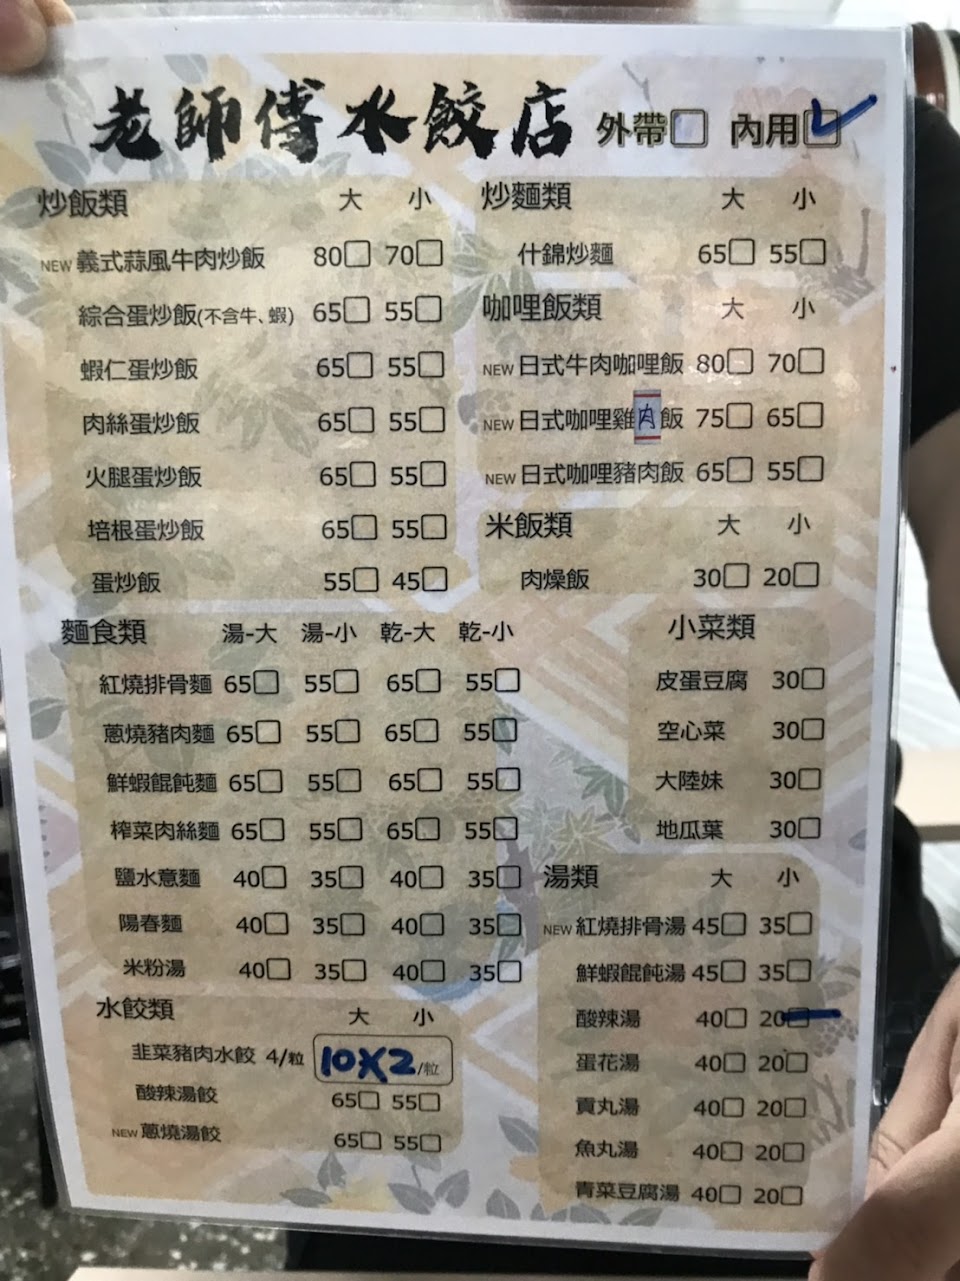 老師傅水餃店 外帶□ 內用☑
炒飯類 大 小
NEW 義式蒜風牛肉炒飯 80□ 70□
綜合蛋炒飯(不含牛、蝦) 65□ 55□
蝦仁蛋炒飯 65□ 55□
肉絲蛋炒飯 65□ 55□
火腿蛋炒飯 65□ 55□
培根蛋炒飯 65□ 55□
蛋炒飯 55□ 45□
炒麵類 大 小
什錦炒麵 65□ 55□
咖哩飯類 大 小
NEW 日式牛肉咖哩飯 80□ 70□
NEW 日式咖哩雞肉飯 75□ 65□
NEW 日式咖哩豬肉飯 65□ 55□
米飯類 大 小
肉燥飯 30□ 20□
麵食類 湯-大 湯-小 乾-大 乾-小
紅燒排骨麵 65□ 55□ 65□ 55□
蔥燒豬肉麵 65□ 55□ 65□ 55□
鮮蝦餛飩麵 65□ 55□ 65□ 55□
榨菜肉絲麵 65□ 55□ 65□ 55□
鹽水意麵 40□ 35□ 40□ 35□
陽春麵 40□ 35□ 40□ 35□
米粉湯 40□ 35□ 40□ 35□
小菜類
皮蛋豆腐 30□
空心菜 30□
大陸妹 30□
地瓜葉 30□
水餃類 大 小
韭菜豬肉水餃 4/粒 10X2/粒
酸辣湯餃 65□ 55□
NEW 蔥燒湯餃 65□ 55□
湯類 大 小
NEW 紅燒排骨湯 45□ 35□
鮮蝦餛飩湯 45□ 35□
酸辣湯 40□ 20□
蛋花湯 40□ 20□
貢丸湯 40□ 20□
魚丸湯 40□ 20□
青菜豆腐湯 40□ 20□